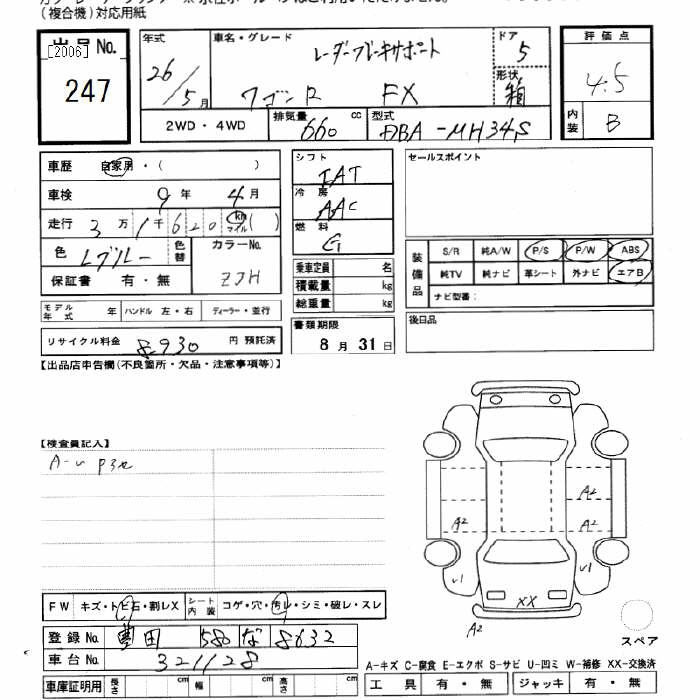 (複合機)対応用紙
出品No.
[2006]
247
年式
26/5月
車名・グレード
レーダーブレーキサポート
ワゴンR FX
ドア
5
形状
箱
評価点
4.5
内装
B
2WD・4WD
排気量
660 cc
型式
DBA-MH34S
車歴 自家用・( )
車検 9年 4月
走行 3万1千620 km マイル ( )
色 Lブルー 色替
カラーNo.
ZJH
保証書 有・無
シフト
IAT
冷房
AAC
燃料
G
乗車定員 名
積載量 kg
総重量 kg
セールスポイント
装備品
S/R 純A/W P/S P/W ABS
純TV 純ナビ 革シート 外ナビ エアB
ナビ型番:
モデル年式 年 ハンドル 左・右 ディーラー・並行
書類期限
8月31日
後日品
リサイクル料金 8930 円 預託済
【出品店申告欄(不良箇所・欠品・注意事項等)】
【検査員記入】
A-U P3E
A2
A2
A2
U1
U1
XX
A2
スペア
FW キズ・トビ石・割レX シート内装 コゲ・穴・汚レ・シミ・破レ・スレ
登録No. 豊田 580 な 8632
車台No. 321128
A-キズ C-腐食 E-エクボ S-サビ U-凹ミ W-補修 XX-交換済
車庫証明用 長さ cm 幅 cm 高さ cm
工具 有・無 ジャッキ 有・無